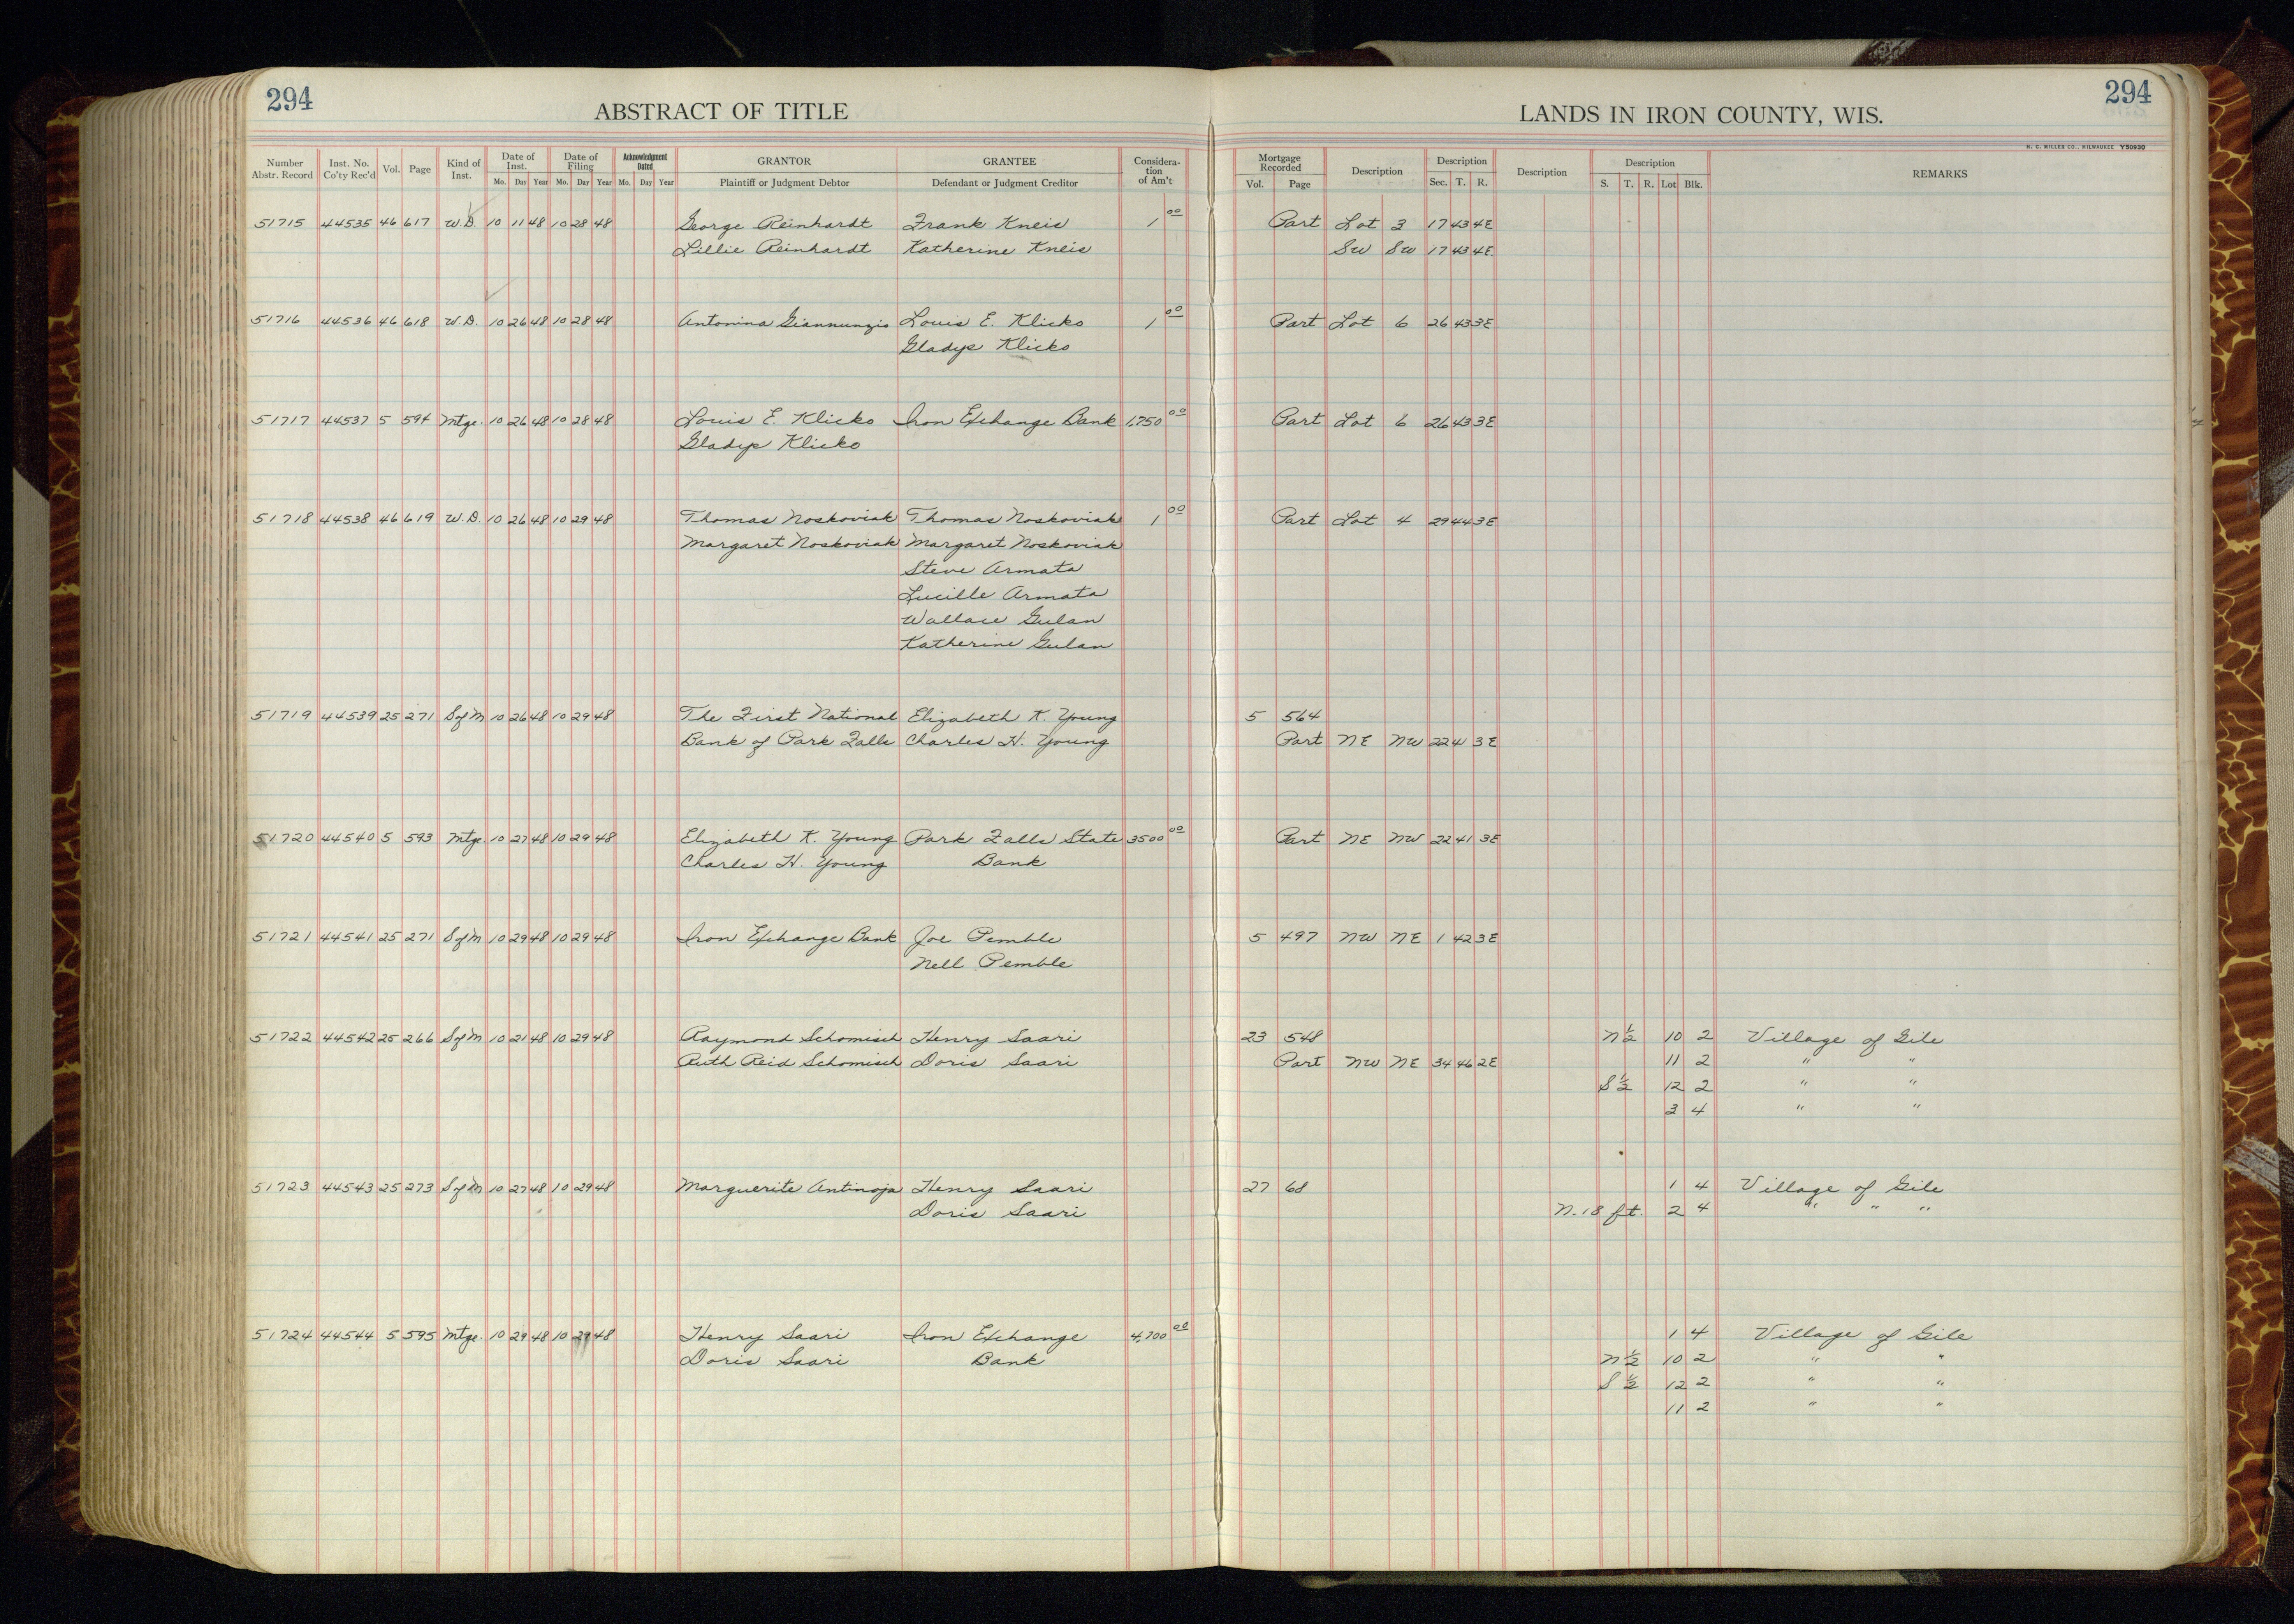 294
ABSTRACT OF TITLE
LANDS IN IRON COUNTY, WIS.
294
H. C. MILLER CO., MILWAUKEE Y50930
Number Abstr. Record | Inst. No. Co'ty Rec'd | Vol. | Page | Kind of Inst. | Date of Inst. Mo. Day Year | Date of Filing Mo. Day Year | Acknowledgment Dated Mo. Day Year | GRANTOR Plaintiff or Judgment Debtor | GRANTEE Defendant or Judgment Creditor | Considera-tion of Am't | Mortgage Recorded Vol. Page | Description | Description Sec. T. R. | Description | Description S. T. R. Lot Blk. | REMARKS
51715 44535 46 617 W.D. 10 11 48 10 28 48 George Reinhardt Frank Kneis 1 00 Part Lot 3 17 43 4E
Lillie Reinhardt Katherine Kneis SW SW 17 43 4E.
51716 44536 46 618 W.D. 10 26 48 10 28 48 Antonina Giannunzio Louis E. Klicko 1 00 Part Lot 6 26 43 3E
Gladys Klicko
51717 44537 5 594 Mtge. 10 26 48 10 28 48 Louis E. Klicko Iron Exchange Bank 1,750 00 Part Lot 6 26 43 3E
Gladys Klicko
51718 44538 46 619 W.D. 10 26 48 10 29 48 Thomas Noskoviak Thomas Noskoviak 1 00 Part Lot 4 29 44 3E
Margaret Noskoviak Margaret Noskoviak
Steve Armata
Lucille Armata
Wallace Gulan
Katherine Gulan
51719 44539 25 271 S of M 10 26 48 10 29 48 The First National Elizabeth K. Young 5 564
Bank of Park Falls Charles H. Young Part NE NW 22 4 3E
51720 44540 5 593 Mtge. 10 27 48 10 29 48 Elizabeth K. Young Park Falls State 3500 00 Part NE NW 22 41 3E
Charles H. Young Bank
51721 44541 25 271 S of M 10 29 48 10 29 48 Iron Exchange Bank Joe Pemble 5 497 NW NE 1 42 3E
Nell Pemble
51722 44542 25 266 S of M 10 21 48 10 29 48 Raymond Schomisch Henry Saari 23 548 N ½ 10 2 Village of Gile
Ruth Reid Schomisch Doris Saari Part NW NE 34 46 2E 11 2 " "
S ½ 12 2 " "
3 4 " "
51723 44543 25 273 S of M 10 27 48 10 29 48 Marguerite Antinoja Henry Saari 27 68 1 4 Village of Gile
Doris Saari N. 18 ft. 2 4 " " "
51724 44544 5 595 Mtge. 10 29 48 10 29 48 Henry Saari Iron Exchange 4,700 00 1 4 Village of Gile
Doris Saari Bank N ½ 10 2 " "
S ½ 12 2 " "
11 2 " "